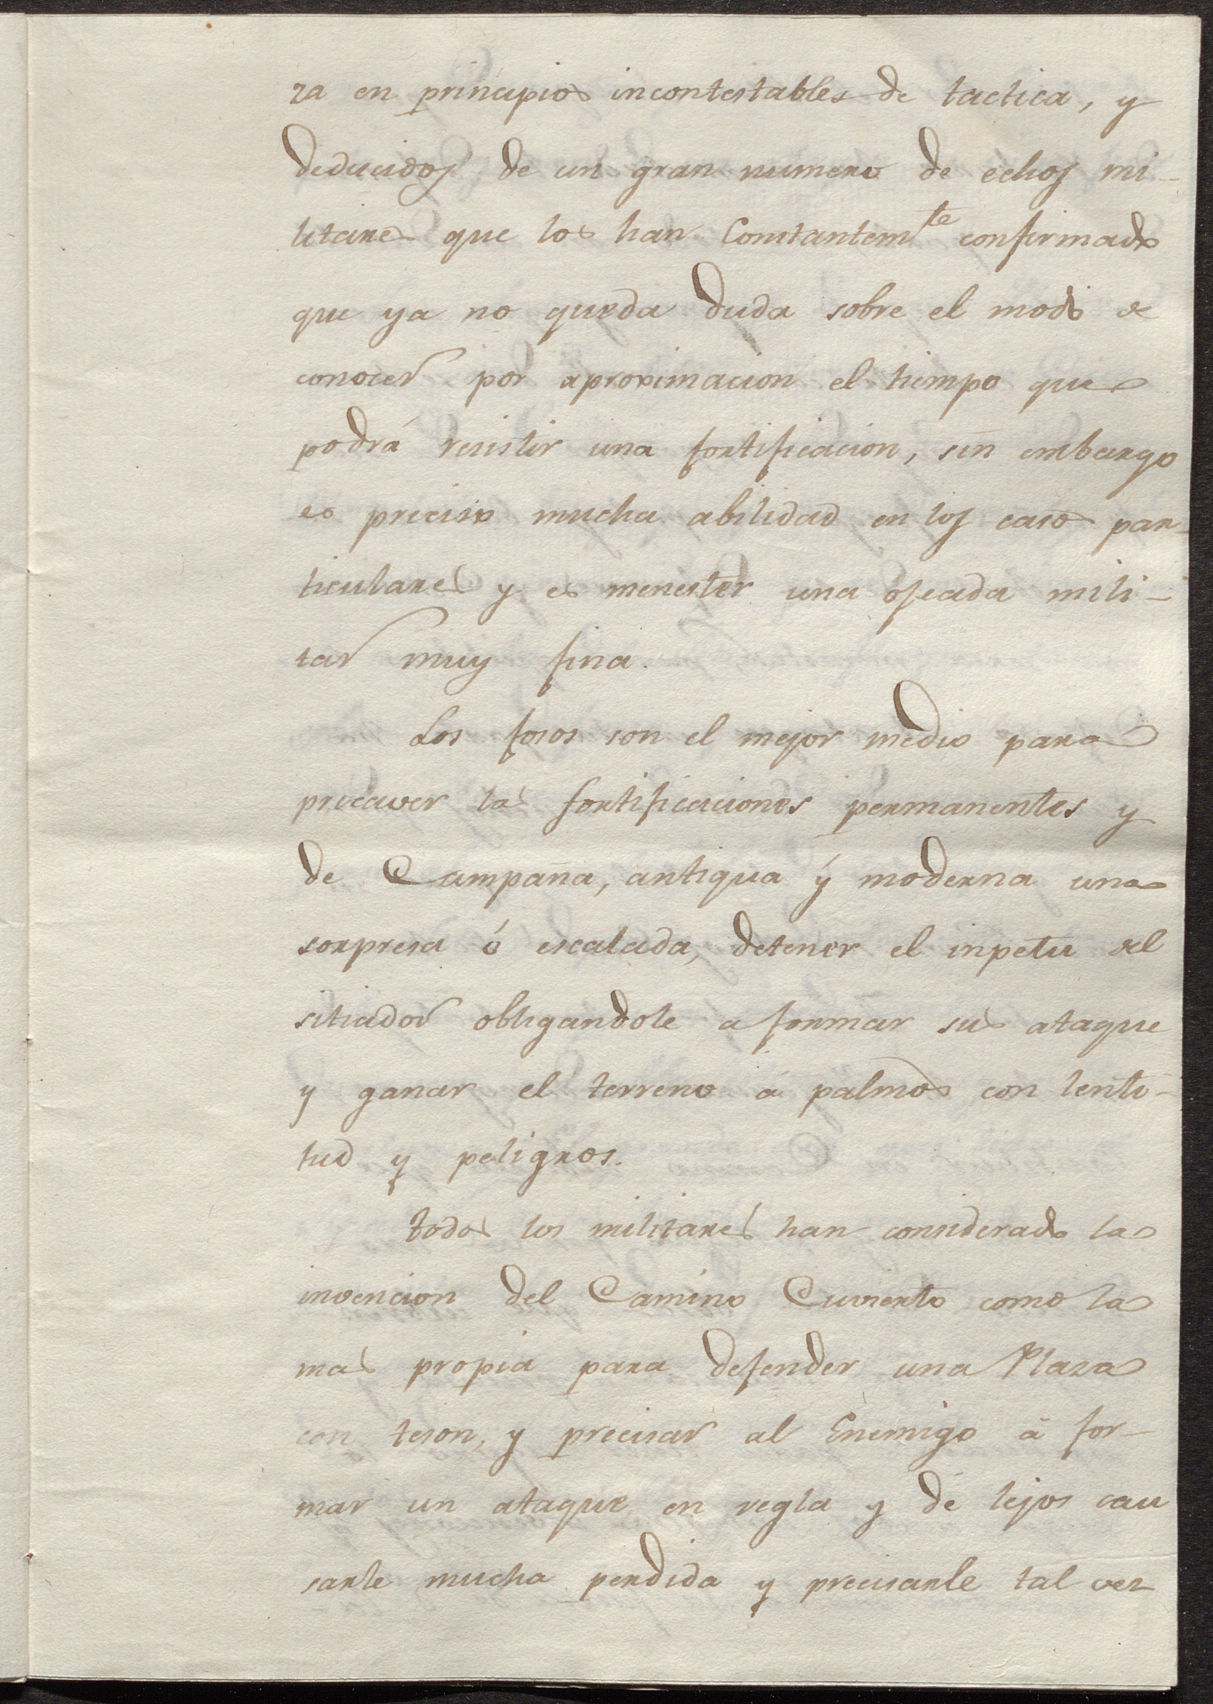 za en principios incontestables de tactica, y
deducidos de un gran numero de echos mi-
litares que los han Constantem.te confirmado
que ya no queda duda sobre el modo de
conocer por aproximacion el tiempo que
podrá resistir una fortificacion, sin embargo
es preciso mucha abilidad en los casos par-
ticulares y es menester una ojeada mili-
tar muy fina.
Los fosos son el mejor medio para
precaver las fortificaciones permanentes y
de Campaña, antiqua ý moderna una
sorpresa ó escalada, detener el inpetu del
sitiador obligandole a formar sus ataque
y ganar el terreno á palmos con lenti-
tud y peligros.
todos los militares han considerado la
invencion del Camino Cuvierto como la
mas propia para defender una Plaza
con teson, y precisar al Enemigo á for-
mar un ataque en regla y de lejos cau
sarle mucha perdida y precisarle tal vez